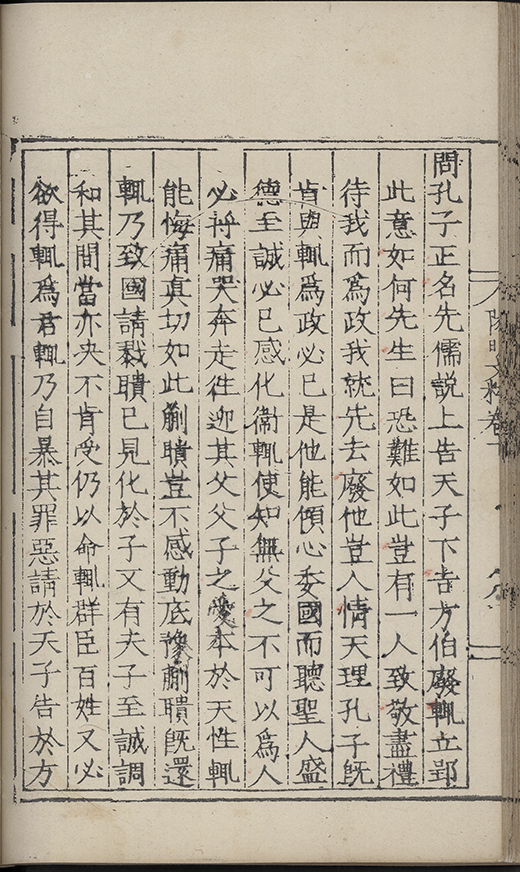 問孔子正名先儒説上告天子下告方伯廢輒立郢
此意如何先生曰恐難如此豈有一人致敬盡禮
待我而爲政我就先去廢他豈人情天理孔子既
肯與輒爲政必已是他能傾心委國而聽聖人盛
德至誠必已感化衞輒使知無父之不可以爲人
必將痛哭奔走徃迎其父父子之愛本於天性輒
能悔痛真切如此蒯聵豈不感動底豫蒯聵既還
輒乃致國請戮聵已見化於子又有夫子至誠調
和其間當亦决不肯受仍以命輒群臣百姓又必
欲得輒爲君輒乃自暴其罪惡請於天子告於方